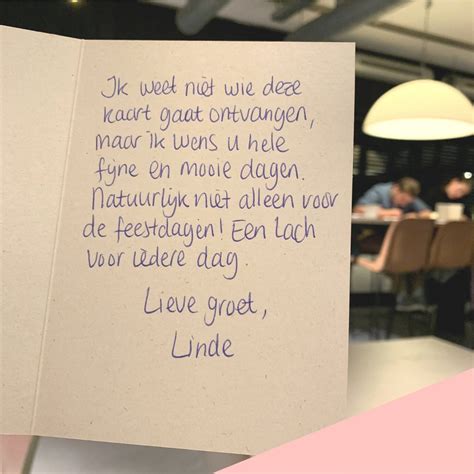 Ik weet niet wie deze
kaart gaat ontvangen,
maar ik wens u hele
fijne en mooie dagen.
Natuurlijk niet alleen voor
de feestdagen! Een lach
voor iedere dag.
Lieve groet,
Linde